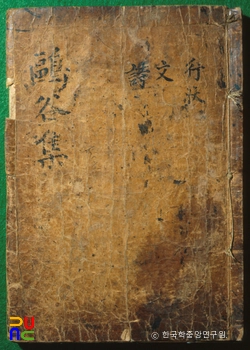 行狀
文
詩
鷗谷集
© 한국학중앙연구원